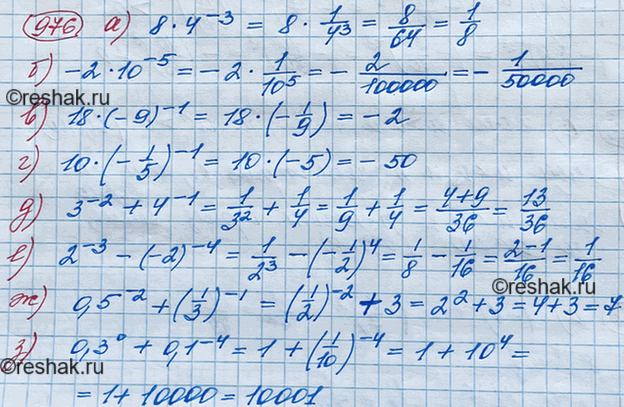 976 а) 8 · 4⁻³ = 8 · 1/4³ = 8/64 = 1/8
б) -2 · 10⁻⁵ = -2 · 1/10⁵ = - 2/100000 = - 1/50000
©reshak.ru
в) 18 · (-9)⁻¹ = 18 · (-1/9) = -2
г) 10 · (-1/5)⁻¹ = 10 · (-5) = -50
©reshak.ru
д) 3⁻² + 4⁻¹ = 1/3² + 1/4 = 1/9 + 1/4 = (4+9)/36 = 13/36
е) 2⁻³ - (-2)⁻⁴ = 1/2³ - (-1/2)⁴ = 1/8 - 1/16 = (2-1)/16 = 1/16
ж) 0,5⁻² + (1/3)⁻¹ = (1/2)⁻² + 3 = 2² + 3 = 4+3 = 7
з) 0,3⁰ + 0,1⁻⁴ = 1 + (1/10)⁻⁴ = 1 + 10⁴ =
©reshak.ru
= 1 + 10000 = 10001